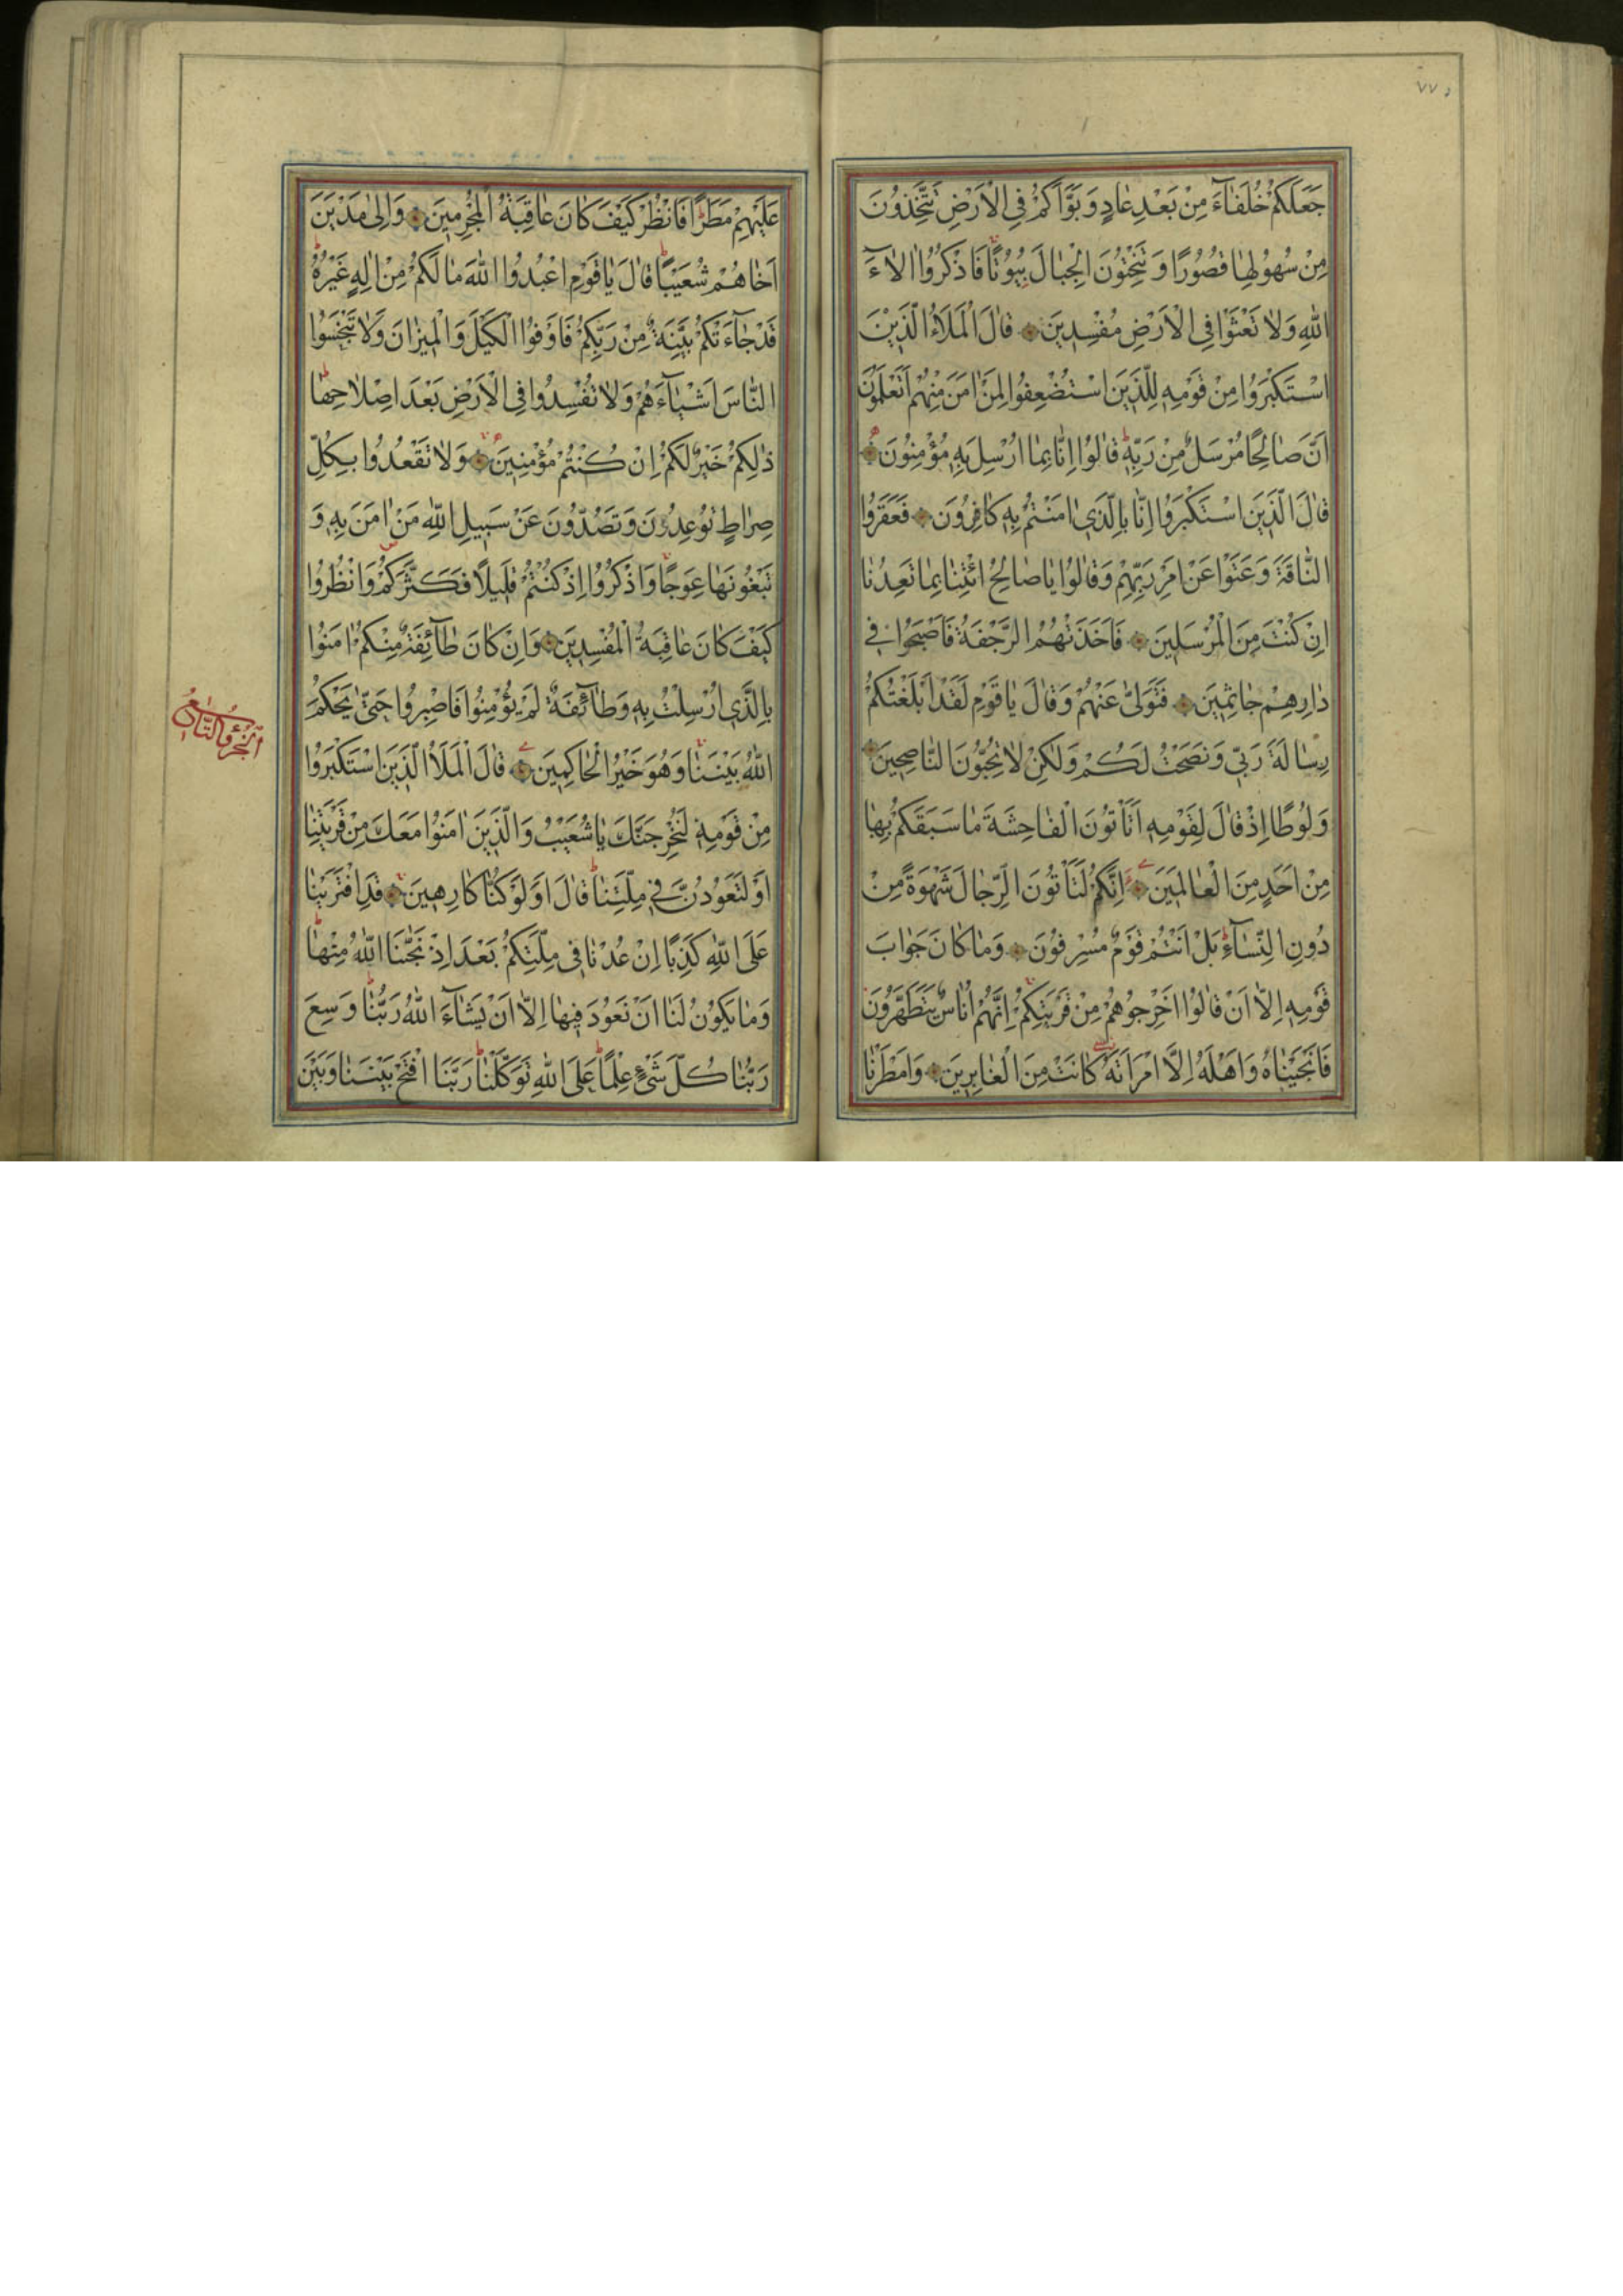 جَعَلَكُمْ خُلَفَآءَ مِنْ بَعْدِ عٰادٍ وَبَوَّاَكُمْ فِى الْاَرْضِ تَتَّخِذُونَ
مِنْ سُهُولِهٰا قُصُورًا وَتَنْحِتُونَ الْجِبٰالَ بُيُوتًا فَاذْكُرُوا اٰلٰآءَ
اللّٰهِ وَلٰا تَعْثَوْا فِى الْاَرْضِ مُفْسِدِينَ قٰالَ الْمَلَاُ الَّذِينَ
اسْتَكْبَرُوا مِنْ قَوْمِهِ لِلَّذِينَ اسْتُضْعِفُوا لِمَنْ اٰمَنَ مِنْهُمْ اَتَعْلَمُونَ
اَنَّ صٰالِحًا مُرْسَلٌ مِنْ رَبِّهِ قٰالُوا اِنّٰا بِمٰا اُرْسِلَ بِهِ مُؤْمِنُونَ
قٰالَ الَّذِينَ اسْتَكْبَرُوا اِنّٰا بِالَّذِى اٰمَنْتُمْ بِهِ كٰافِرُونَ فَعَقَرُوا
النّٰاقَةَ وَعَتَوْا عَنْ اَمْرِ رَبِّهِمْ وَقٰالُوا يٰا صٰالِحُ ائْتِنٰا بِمٰا تَعِدُنٰا
اِنْ كُنْتَ مِنَ الْمُرْسَلِينَ فَاَخَذَتْهُمُ الرَّجْفَةُ فَاَصْبَحُوا فِى
دٰارِهِمْ جٰاثِمِينَ فَتَوَلّٰى عَنْهُمْ وَقٰالَ يٰا قَوْمِ لَقَدْ اَبْلَغْتُكُمْ
رِسٰالَةَ رَبِّى وَنَصَحْتُ لَكُمْ وَلٰكِنْ لٰا تُحِبُّونَ النّٰاصِحِينَ
وَلُوطًا اِذْ قٰالَ لِقَوْمِهِ اَتَاْتُونَ الْفٰاحِشَةَ مٰا سَبَقَكُمْ بِهٰا
مِنْ اَحَدٍ مِنَ الْعٰالَمِينَ اِنَّكُمْ لَتَاْتُونَ الرِّجٰالَ شَهْوَةً مِنْ
دُونِ النِّسٰآءِ بَلْ اَنْتُمْ قَوْمٌ مُسْرِفُونَ وَمٰا كٰانَ جَوٰابَ
قَوْمِهِ اِلّٰا اَنْ قٰالُوا اَخْرِجُوهُمْ مِنْ قَرْيَتِكُمْ اِنَّهُمْ اُنٰاسٌ يَتَطَهَّرُونَ
فَاَنْجَيْنٰاهُ وَاَهْلَهُ اِلَّا امْرَاَتَهُ كٰانَتْ مِنَ الْغٰابِرِينَ وَاَمْطَرْنٰا
عَلَيْهِمْ مَطَرًا فَانْظُرْ كَيْفَ كٰانَ عٰاقِبَةُ الْمُجْرِمِينَ وَاِلٰى مَدْيَنَ
اَخٰاهُمْ شُعَيْبًا قٰالَ يٰا قَوْمِ اعْبُدُوا اللّٰهَ مٰا لَكُمْ مِنْ اِلٰهٍ غَيْرُهُ
قَدْ جٰآءَتْكُمْ بَيِّنَةٌ مِنْ رَبِّكُمْ فَاَوْفُوا الْكَيْلَ وَالْمِيزٰانَ وَلٰا تَبْخَسُوا
النّٰاسَ اَشْيٰآءَهُمْ وَلٰا تُفْسِدُوا فِى الْاَرْضِ بَعْدَ اِصْلٰاحِهٰا
ذٰلِكُمْ خَيْرٌ لَكُمْ اِنْ كُنْتُمْ مُؤْمِنِينَ وَلٰا تَقْعُدُوا بِكُلِّ
صِرٰاطٍ تُوعِدُونَ وَتَصُدُّونَ عَنْ سَبِيلِ اللّٰهِ مَنْ اٰمَنَ بِهِ وَ
تَبْغُونَهٰا عِوَجًا وَاذْكُرُوا اِذْ كُنْتُمْ قَلِيلًا فَكَثَّرَكُمْ وَانْظُرُوا
كَيْفَ كٰانَ عٰاقِبَةُ الْمُفْسِدِينَ وَاِنْ كٰانَ طٰآئِفَةٌ مِنْكُمْ اٰمَنُوا
بِالَّذِى اُرْسِلْتُ بِهِ وَطٰآئِفَةٌ لَمْ يُؤْمِنُوا فَاصْبِرُوا حَتّٰى يَحْكُمَ
اللّٰهُ بَيْنَنٰا وَهُوَ خَيْرُ الْحٰاكِمِينَ قٰالَ الْمَلَاُ الَّذِينَ اسْتَكْبَرُوا
مِنْ قَوْمِهِ لَنُخْرِجَنَّكَ يٰا شُعَيْبُ وَالَّذِينَ اٰمَنُوا مَعَكَ مِنْ قَرْيَتِنٰا
اَوْ لَتَعُودُنَّ فِى مِلَّتِنٰا قٰالَ اَوَلَوْ كُنّٰا كٰارِهِينَ قَدِ افْتَرَيْنٰا
عَلَى اللّٰهِ كَذِبًا اِنْ عُدْنٰا فِى مِلَّتِكُمْ بَعْدَ اِذْ نَجّٰنَا اللّٰهُ مِنْهٰا
وَمٰا يَكُونُ لَنٰا اَنْ نَعُودَ فِيهٰا اِلّٰا اَنْ يَشٰآءَ اللّٰهُ رَبُّنٰا وَسِعَ
رَبُّنٰا كُلَّ شَىْءٍ عِلْمًا عَلَى اللّٰهِ تَوَكَّلْنٰا رَبَّنَا افْتَحْ بَيْنَنٰا وَبَيْنَ
الجزؤ التاسع